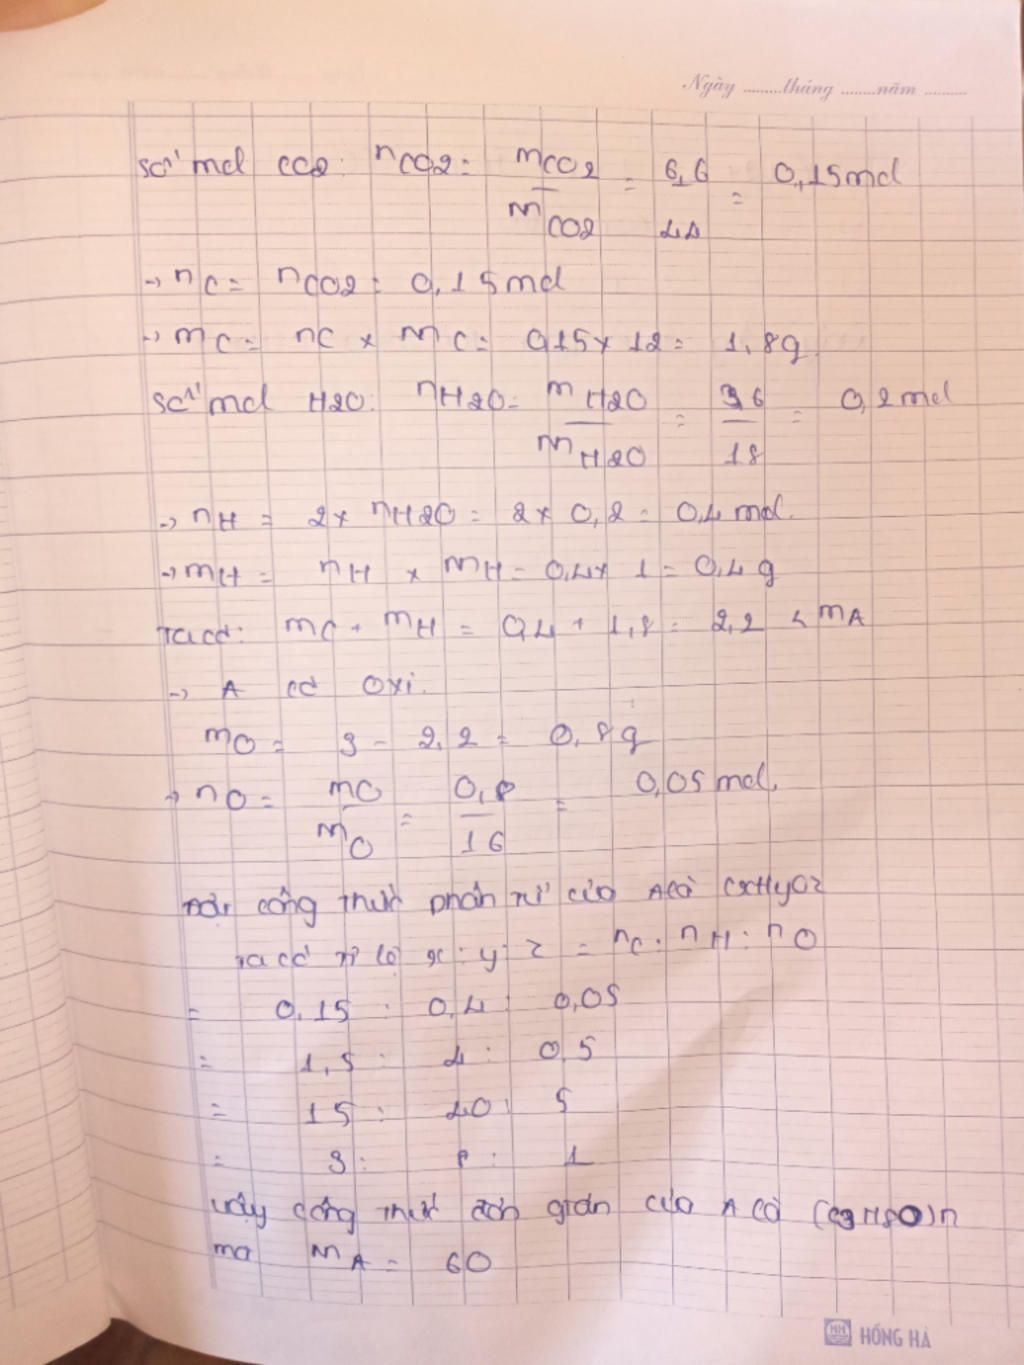 Ngày ........tháng ........năm ..........
Số mol CO2: nCO2 = mCO2 / MCO2 = 6,6 / 44 = 0,15 mol
→ nC = nCO2 = 0,15 mol
→ mC = nC x MC = 0,15 x 12 = 1,8g
Số mol H2O: nH2O = mH2O / MH2O = 3,6 / 18 = 0,2 mol
→ nH = 2x nH2O = 2x 0,2 = 0,4 mol.
→ mH = nH x MH = 0,4 x 1 = 0,4 g
Ta có: mC + mH = 0,4 + 1,8 = 2,2 < mA
→ A có oxi.
mO = 3 - 2,2 = 0,8g
→ nO = mO / MO = 0,8 / 16 = 0,05 mol.
Đặt công thức phân tử của A là CxHyOz
Ta có tỉ lệ x : y : z = nC : nH : nO
= 0,15 : 0,4 : 0,05
= 1,5 : 4 : 0,5
= 15 : 40 : 5
= 3 : 8 : 1
Vậy công thức đơn giản của A là (C3H8O)n
mà MA = 60
HH HỒNG HÀ